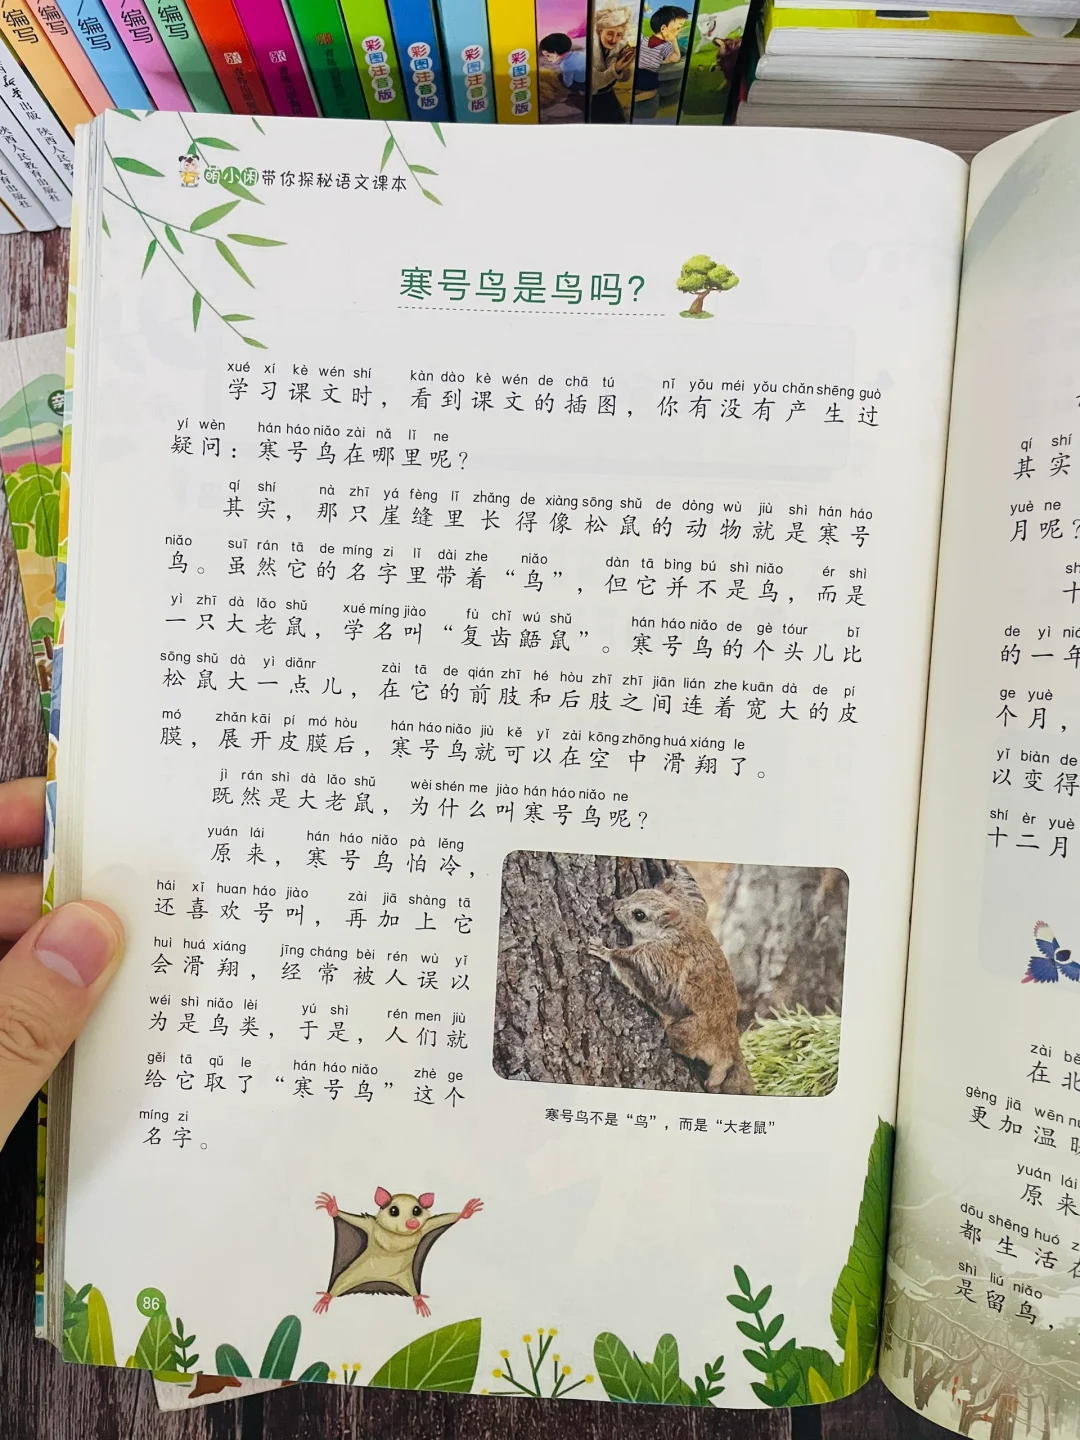 编写
编写
编写
编写
编写
彩图注音版
彩图注音版
彩图注音版
彩图注音版
陕西人民教育出版社
萌小闲带你探秘语文课本
寒号鸟是鸟吗?
xué xí kè wén shí kàn dào kè wén de chā tú nǐ yǒu méi yǒu chǎn shēng guò
学习课文时，看到课文的插图，你有没有产生过
yí wèn hán háo niǎo zài nǎ lǐ ne
疑问：寒号鸟在哪里呢？
qí shí nà zhī yá fèng lǐ zhǎng de xiàng sōng shǔ de dòng wù jiù shì hán háo
其实，那只崖缝里长得像松鼠的动物就是寒号
niǎo suī rán tā de míng zi lǐ dài zhe niǎo dàn tā bìng bú shì niǎo ér shì
鸟。虽然它的名字里带着“鸟”，但它并不是鸟，而是
yì zhī dà lǎo shǔ xué míng jiào fù chǐ wú shǔ hán háo niǎo de gè tóur bǐ
一只大老鼠，学名叫“复齿鼯鼠”。寒号鸟的个头儿比
sōng shǔ dà yì diǎnr zài tā de qián zhī hé hòu zhī zhī jiān lián zhe kuān dà de pí
松鼠大一点儿，在它的前肢和后肢之间连着宽大的皮
mó zhǎn kāi pí mó hòu hán háo niǎo jiù kě yǐ zài kōng zhōng huá xiáng le
膜，展开皮膜后，寒号鸟就可以在空中滑翔了。
jì rán shì dà lǎo shǔ wèi shén me jiào hán háo niǎo ne
既然是大老鼠，为什么叫寒号鸟呢？
yuán lái hán háo niǎo pà lěng
原来，寒号鸟怕冷，
hái xǐ huan háo jiào zài jiā shàng tā
还喜欢号叫，再加上它
huì huá xiáng jīng cháng bèi rén wù yǐ
会滑翔，经常被人误以
wéi shì niǎo lèi yú shì rén men jiù
为是鸟类，于是，人们就
gěi tā qǔ le hán háo niǎo zhè ge
给它取了“寒号鸟”这个
míng zi
名字。
寒号鸟不是“鸟”，而是“大老鼠”
86
qí shí
其实
yuè ne
月呢？
十
de yì nián
的一年
ge yuè
个月，
yǐ biàn de
以变得
shí èr yuè
十二月
zài
在北
gèng jiā wēn
更加温暖
yuán lái
原来
dōu shēng huó
都生活在
shì liú niǎo
是留鸟，